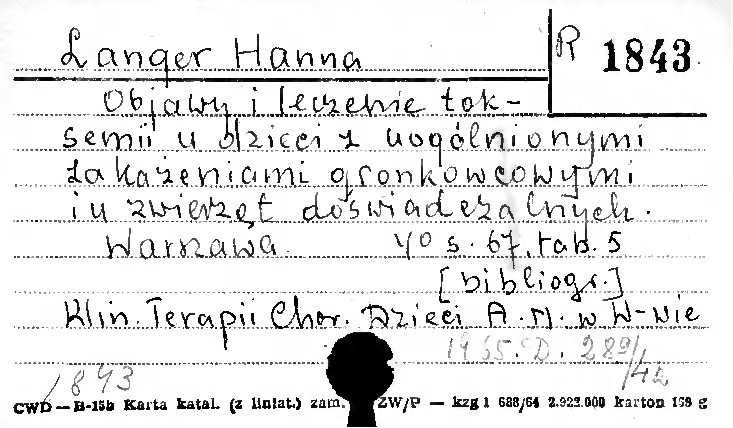 Langer Hanna
R 1843
Objawy i leczenie tok-
semii u dzieci z uogólnionymi
zakażeniami gronkowcowymi
i u zwierząt doświadczalnych.
Warszawa 40 s. 67, tab. 5
[bibliogr.]
Klin. Terapii Chor. Dzieci A.M. w W-wie
1965. D. 289/42
1843
CWD — B-15b Karta katal. (z liniat.) zam. ZW/P — kzg 1 688/64 2.922.000 karton 158 g